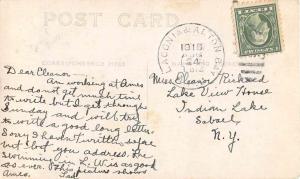 POST CARD
CORRESPONDENCE HERE
LACONIA & ALTON BAY
1916
AUG
24
Dear Eleanor-
Am working at Ames
and do not get much time
to write but I get through
Sunday and will try
to write a good long letter.
Sorry I haven't written before
but lost you address. The
swimming in L.W. is as good
as ever. This picture shows
Ames.
Miss Eleanor
Lake View House
Indian Lake
Sabael
N.Y.